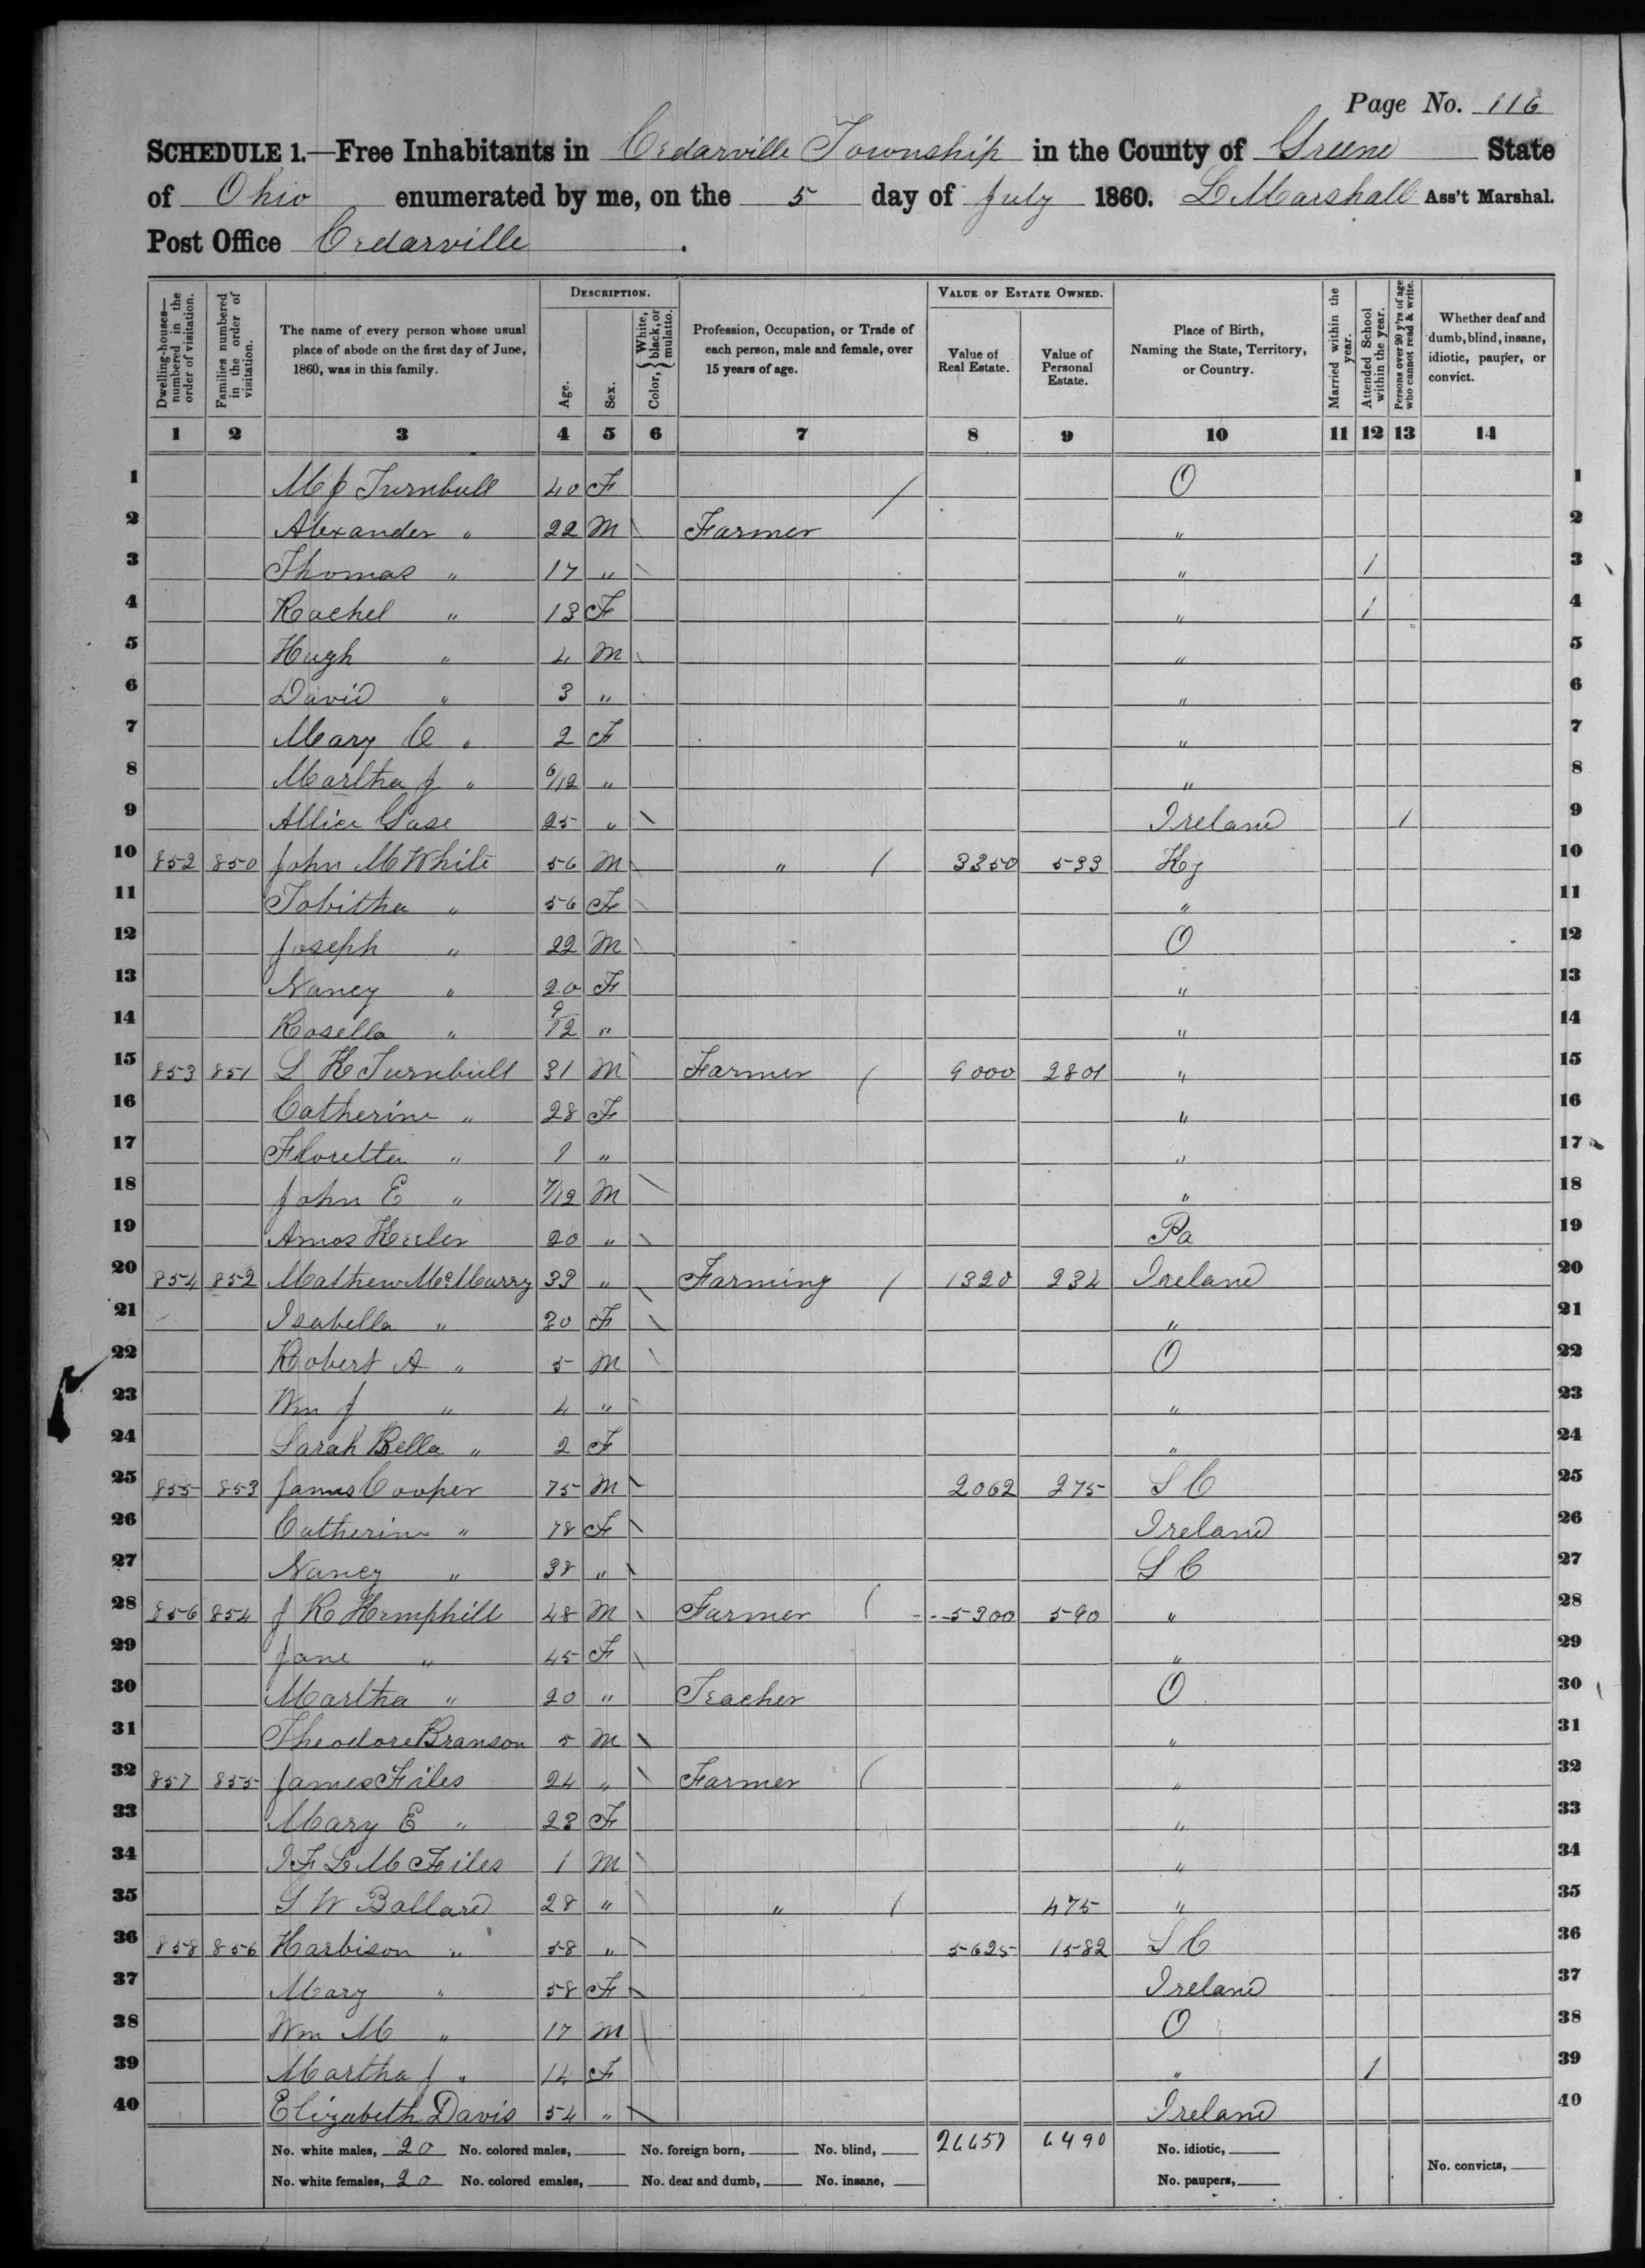 Page No. 116
SCHEDULE 1.—Free Inhabitants in Cedarville Township in the County of Greene State
of Ohio enumerated by me, on the 5 day of July 1860. L Marshall Ass't Marshal.
Post Office Cedarville.
Dwelling-houses—numbered in the order of visitation.
Families numbered in the order of visitation.
The name of every person whose usual place of abode on the first day of June, 1860, was in this family.
DESCRIPTION.
Age.
Sex.
Color, { White, black, or mulatto.
Profession, Occupation, or Trade of each person, male and female, over 15 years of age.
VALUE OF ESTATE OWNED.
Value of Real Estate.
Value of Personal Estate.
Place of Birth, Naming the State, Territory, or Country.
Married within the year.
Attended School within the year.
Persons over 20 y'rs of age who cannot read & write.
Whether deaf and dumb, blind, insane, idiotic, pauper, or convict.
1 2 3 4 5 6 7 8 9 10 11 12 13 14
1 M J Turnbull 40 F / O 1
2 Alexander " 22 M \ Farmer " 2
3 Thomas " 17 " \ " 1 3
4 Rachel " 13 F " 1 4
5 Hugh " 4 M \ " 5
6 David " 3 " \ " 6
7 Mary C " 2 F " 7
8 Martha J " 6/12 " " 8
9 Allice Gase 25 " \ Ireland 1 9
10 852 850 John M White 56 M \ " / 3350 533 Ky 10
11 Tobitha " 56 F \ " 11
12 Joseph " 22 M \ O 12
13 Nancy " 20 F " 13
14 Rosella " 9/12 " " 14
15 853 851 S K Turnbull 31 M Farmer / 9000 2801 " 15
16 Catherine " 28 F " 16
17 Floretta " 1 " " 17
18 John E " 7/12 M \ " 18
19 Amos Keeler 20 " \ Pa 19
20 854 852 Mathew McMurry 33 " \ Farming / 1320 234 Ireland 20
21 Isabella " 30 F \ " 21
22 Robert A " 5 M \ O 22
23 Wm J " 4 " \ " 23
24 Sarah Bella " 2 F " 24
25 855 853 James Cooper 75 M \ 2062 275 S C 25
26 Catherine " 78 F \ Ireland 26
27 Nancy " 38 " \ S C 27
28 856 854 J R Hemphill 48 M \ Farmer / 5300 590 " 28
29 Jane " 45 F \ " 29
30 Martha " 20 " Teacher O 30
31 Theodore Branson 5 M \ " 31
32 857 855 James Files 24 " \ Farmer / " 32
33 Mary E " 23 F " 33
34 I F L M C Files 1 M \ " 34
35 S W Ballard 28 " \ " / 475 " 35
36 858 856 Harbison " 58 " \ 5625 1582 S C 36
37 Mary " 58 F \ Ireland 37
38 Wm M " 17 M O 38
39 Martha J " 14 F " 1 39
40 Elizabeth Davis 54 " \ Ireland 40
No. white males, 20 No. colored males, No. foreign born, No. blind, 26657 6490 No. idiotic,
No. white females, 20 No. colored emales, No. deaf and dumb, No. insane, No. paupers, No. convicts,